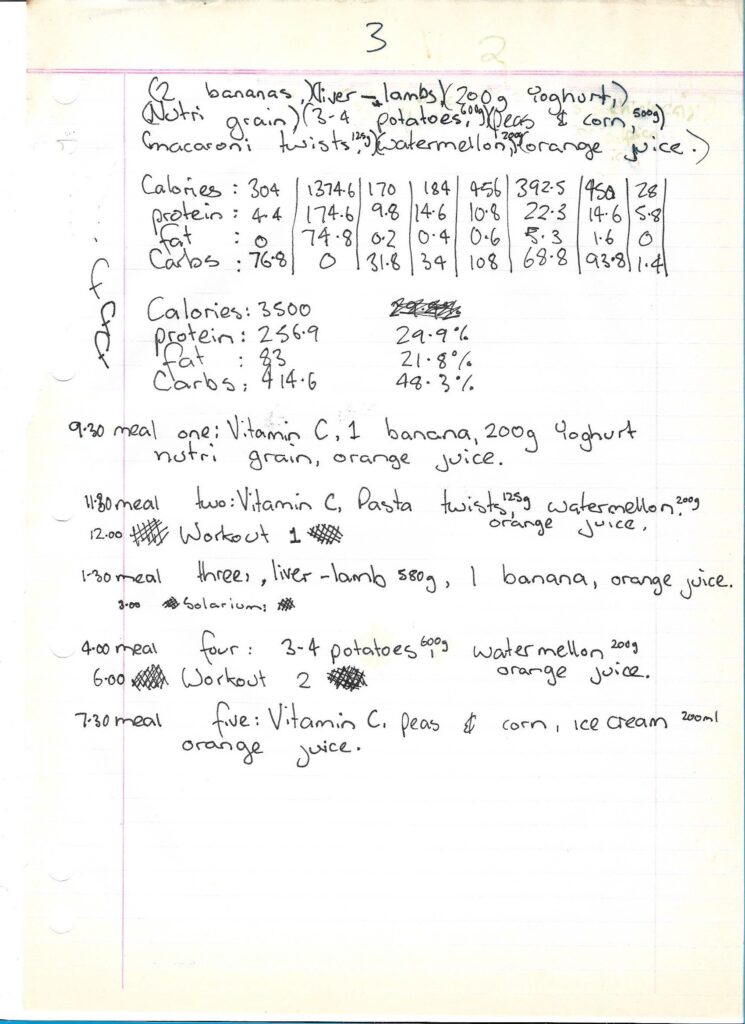 3
(2 bananas,)(liver-lambs,)(200g Yoghurt,)
(Nutri grain)(3-4 potatoes, 600g)(peas & corn, 500g)
(macaroni twists, 125g)(watermellon, 200g)(orange juice.)
Calories: 304 | 1374.6 | 170 | 184 | 456 | 392.5 | 450 | 28
protein: 4.4 | 174.6 | 9.8 | 14.6 | 10.8 | 22.3 | 14.6 | 5.8
fat : 0 | 74.8 | 0.2 | 0.4 | 0.6 | 5.3 | 1.6 | 0
Carbs: 76.8 | 0 | 31.8 | 34 | 108 | 68.8 | 93.8 | 1.4
Calories: 3500
protein: 256.9 29.9%
fat : 83 21.8%
Carbs: 414.6 48.3%
9.30 meal one: Vitamin C, 1 banana, 200g Yoghurt
nutri grain, orange juice.
11.30 meal two: Vitamin C, Pasta twists, 125g watermellon, 200g
orange juice.
12.00 Workout 1
1.30 meal three, liver-lamb 580g, 1 banana, orange juice.
3.00 Solarium:
4.00 meal four: 3-4 potatoes, 600g watermellon 200g
orange juice.
6.00 Workout 2
7.30 meal five: Vitamin C, peas & corn, ice cream 200ml
orange juice.